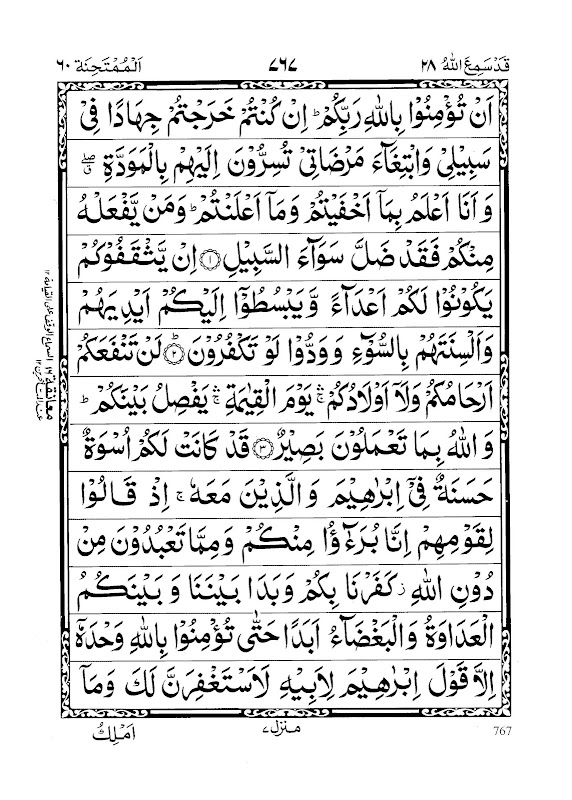 قَدْ سَمِعَ اللّٰهُ ٢٨
٧٦٧
اَلْمُمْتَحِنَة ٦٠
اَنْ تُؤْمِنُوْا بِاللّٰهِ رَبِّكُمْ ؕ اِنْ كُنْتُمْ خَرَجْتُمْ جِهَادًا فِیْ
سَبِیْلِیْ وَابْتِغَآءَ مَرْضَاتِیْ تُسِرُّوْنَ اِلَیْهِمْ بِالْمَوَدَّةِ ۖۗ
وَ اَنَا اَعْلَمُ بِمَاۤ اَخْفَیْتُمْ وَمَاۤ اَعْلَنْتُمْ ؕ وَمَنْ یَّفْعَلْهُ
مِنْكُمْ فَقَدْ ضَلَّ سَوَآءَ السَّبِیْلِ ۝۱ اِنْ یَّثْقَفُوْكُمْ
یَكُوْنُوْا لَكُمْ اَعْدَآءً وَّیَبْسُطُوْۤا اِلَیْكُمْ اَیْدِیَهُمْ
وَاَلْسِنَتَهُمْ بِالسُّوْٓءِ وَوَدُّوْا لَوْ تَكْفُرُوْنَ ؕ۝۲ لَنْ تَنْفَعَكُمْ
اَرْحَامُكُمْ وَلَاۤ اَوْلَادُكُمْ ۛۚ یَوْمَ الْقِیٰمَةِ ۛۚ یَفْصِلُ بَیْنَكُمْ ؕ
وَ اللّٰهُ بِمَا تَعْمَلُوْنَ بَصِیْرٌ ۝۳ قَدْ كَانَتْ لَكُمْ اُسْوَةٌ
حَسَنَةٌ فِیْۤ اِبْرٰهِیْمَ وَ الَّذِیْنَ مَعَهٗ ۚ اِذْ قَالُوْا
لِقَوْمِهِمْ اِنَّا بُرَءٰٓؤُا مِنْكُمْ وَمِمَّا تَعْبُدُوْنَ مِنْ
دُوْنِ اللّٰهِ ؗ كَفَرْنَا بِكُمْ وَبَدَا بَیْنَنَا وَ بَیْنَكُمُ
الْعَدَاوَةُ وَالْبَغْضَآءُ اَبَدًا حَتّٰی تُؤْمِنُوْا بِاللّٰهِ وَحْدَهٗۤ
اِلَّا قَوْلَ اِبْرٰهِیْمَ لِاَبِیْهِ لَاَسْتَغْفِرَنَّ لَكَ وَمَاۤ
منزل ٧
اَمْلِكُ
767
معانقة ١٦